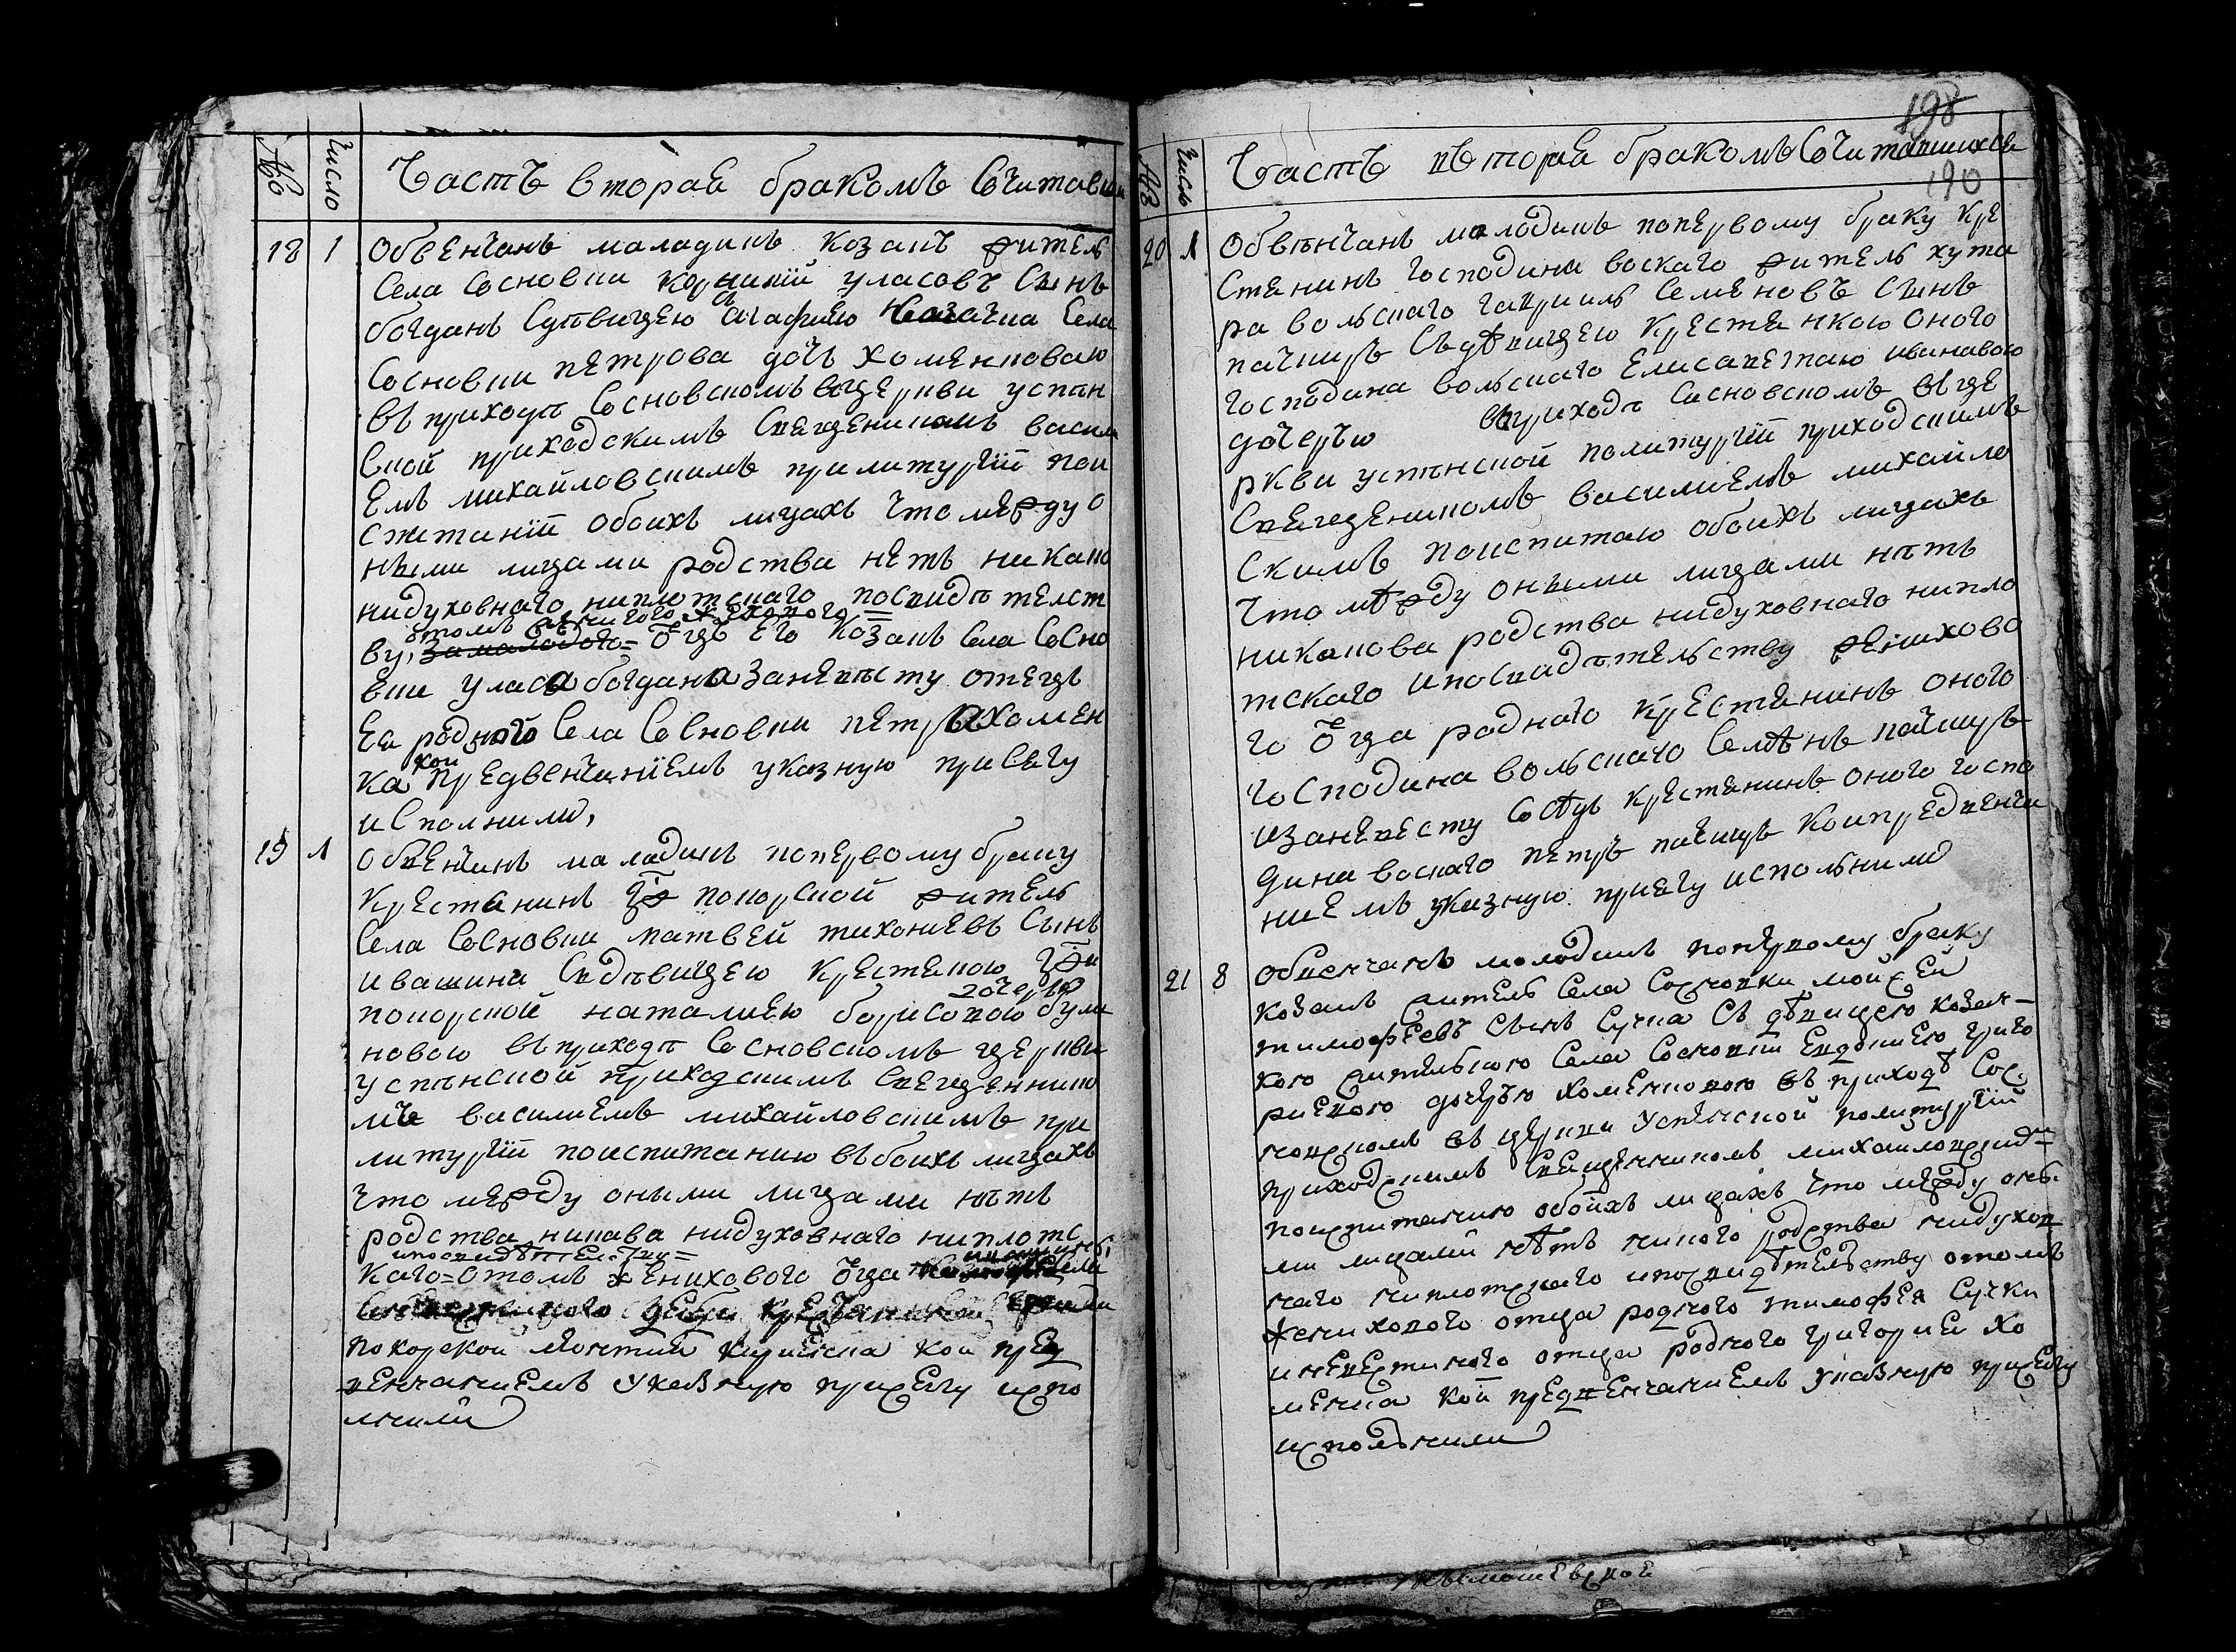 № Число Часть вторая бракомъ Сочитавши
18 1 Обвенчанъ маладикъ козакъ житель
Села Сосновки Корнилій уласовъ Синъ
богданъ Сдѣвицею Агафиею Села
Сосновки петрова дочь хоменковаю
въ приходѣ Сосновскомъ въцеркви успен
Ской приходскимъ Свещеникомъ васили
Емъ михайловскимъ прилитургіи пои
спитаніи обоихъ лицахъ что между о
ными лицами родства нетъ никако
нидуховнаго ниплотскаго посвидѣтелст
ву, отомъ женихового
Замалодого= оцъ его козакъ Села Сосно
вки уласа богдана Заневѣсту отецъ
Ея родного Села Сосновки петра хомен
ка кои предвенчаніемъ указную присягу
исполнили,
19 1 Обвенчанъ маладикъ поперваму браку
крестянинъ покорской житель
Села Сосновки матвей тихониевъ Сынъ
ивашина Сидѣвицею крестянкою
покорской наталиею борисовою дочерью були
новою въприходѣ Сосновскомъ церкви
успѣнской приходскимъ Свещеннико
мъ василиемъ михайловскимъ при
литургіи поиспитанию въбоихъ лицахъ
что между оными лицами нѣтъ
родства никава нидуховнаго ниплотс
каго=отомъ ипосвидѣтелству= женихового оца
покорской кои пред
венчаниемъ указную присягу испо
лнили
198
190
№ Число Часть вторая бракомъ Сочитавшихся
20 1 Обвѣнчанъ молодикъ поперваму браку кре
Стянинъ господина воскаго житель хута
ра вольскаго гавриилъ Семеновъ Сынъ
пачиръ Съдѣвицею крестянкою оного
господина вольскаго Елисаветаю ивановою
дочерью въприходѣ Сосновскомъ въце
ркви успѣнской политургіи приходскимъ
Свещеникомъ василиемъ михайло
Скимъ поиспитаю обоихъ лицахъ
что между оными лицами нѣтъ
никакова родства нидуховнаго нипло
тскаго ипосвидѣтельству женихово
го оца роднаго крестянинъ оного
господина вольскаго Семенъ пачиръ
изаневесту Соцъ крестянинъ оного госпо
дина воскаго петръ пачиръ коипредвенча
ниемъ указную присягу исполнили
21 8 обвенчанъ молодикъ поперъвому браку
козакъ житель Села Сосновки мойсей
тимофѣевъ Сынъ Сучка Съ дѣвицею козач-
кою жителькою Села Сосновки Евдокиею григо
риевою дочерю хоменковою въ приходѣ Сос
новскомъ въ церкви Успенской политургіи
приходскимъ Свещенникомъ михаиловскимъ
поиспитанию обоихъ лицахъ что между оны
ми лицами нѣтъ никого родства нидухов
наго ниплотскаго ипосвидѣтельству отомъ
женихового отца родного тимофея Сучки
иневестиного отца родного григория Хо
менка кои предвенчаниемъ указную присягу
исполънили